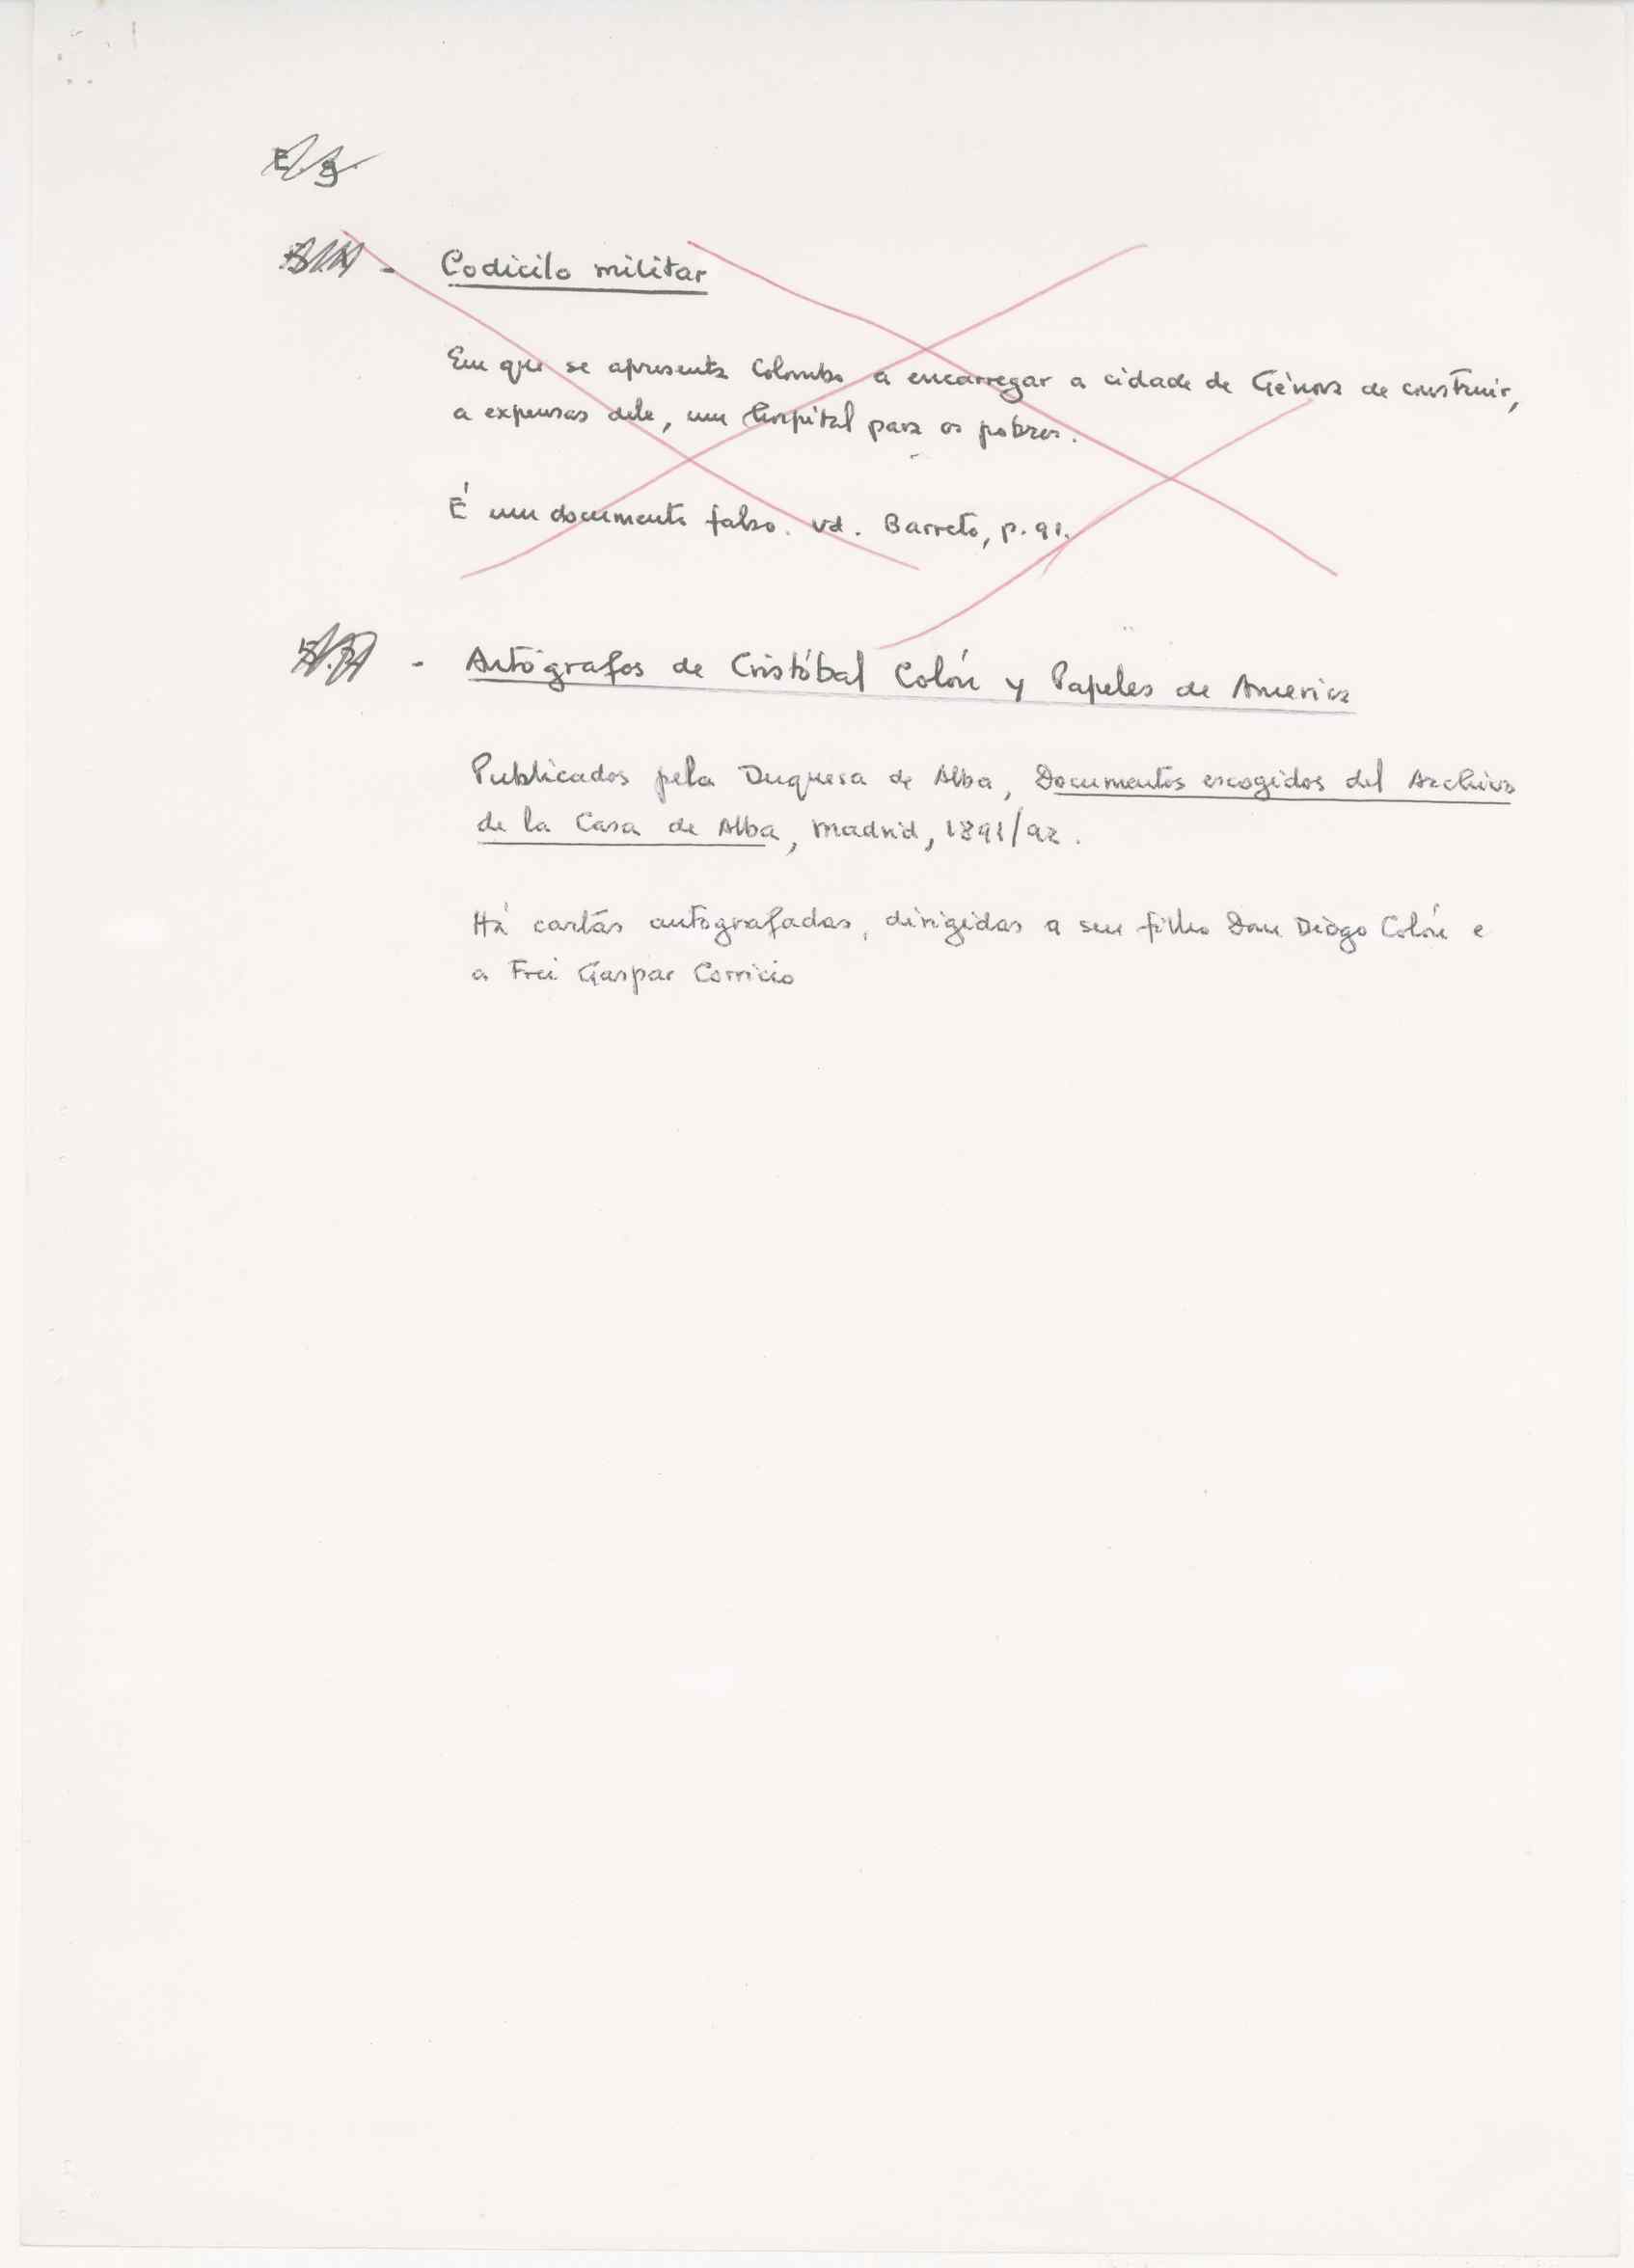 - Codicilo militar
Em que se apresenta Colombo a encarregar a cidade de Génova de construir,
a expensas dele, um hospital para os pobres.
É um documento falso. Vd. Barreto, p. 91.
- Autógrafos de Cristóbal Colón y Papeles de America
Publicados pela Duquesa de Alba, Documentos escogidos del Archivo
de la Casa de Alba, Madrid, 1891/92.
Há cartas autografadas, dirigidas a seu filho Dom Diogo Colón e
a Frei Gaspar Corricio